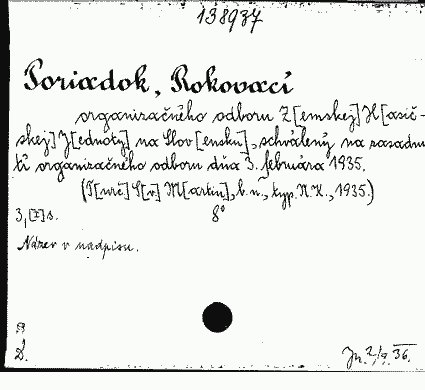 138937
Poriadok, Rokovací
organizačného odboru Z[emskej] H[asič-
skej] J[ednoty] na Slov[ensku], schválený na zasadnu
tí organizačného odboru dňa 3. februára 1935.
(T[urč.] S[v.] M[artin], b. n., typ. N. K., 1935.)
3, [I] s. 8°
Názov v nadpisu.
D.
36.